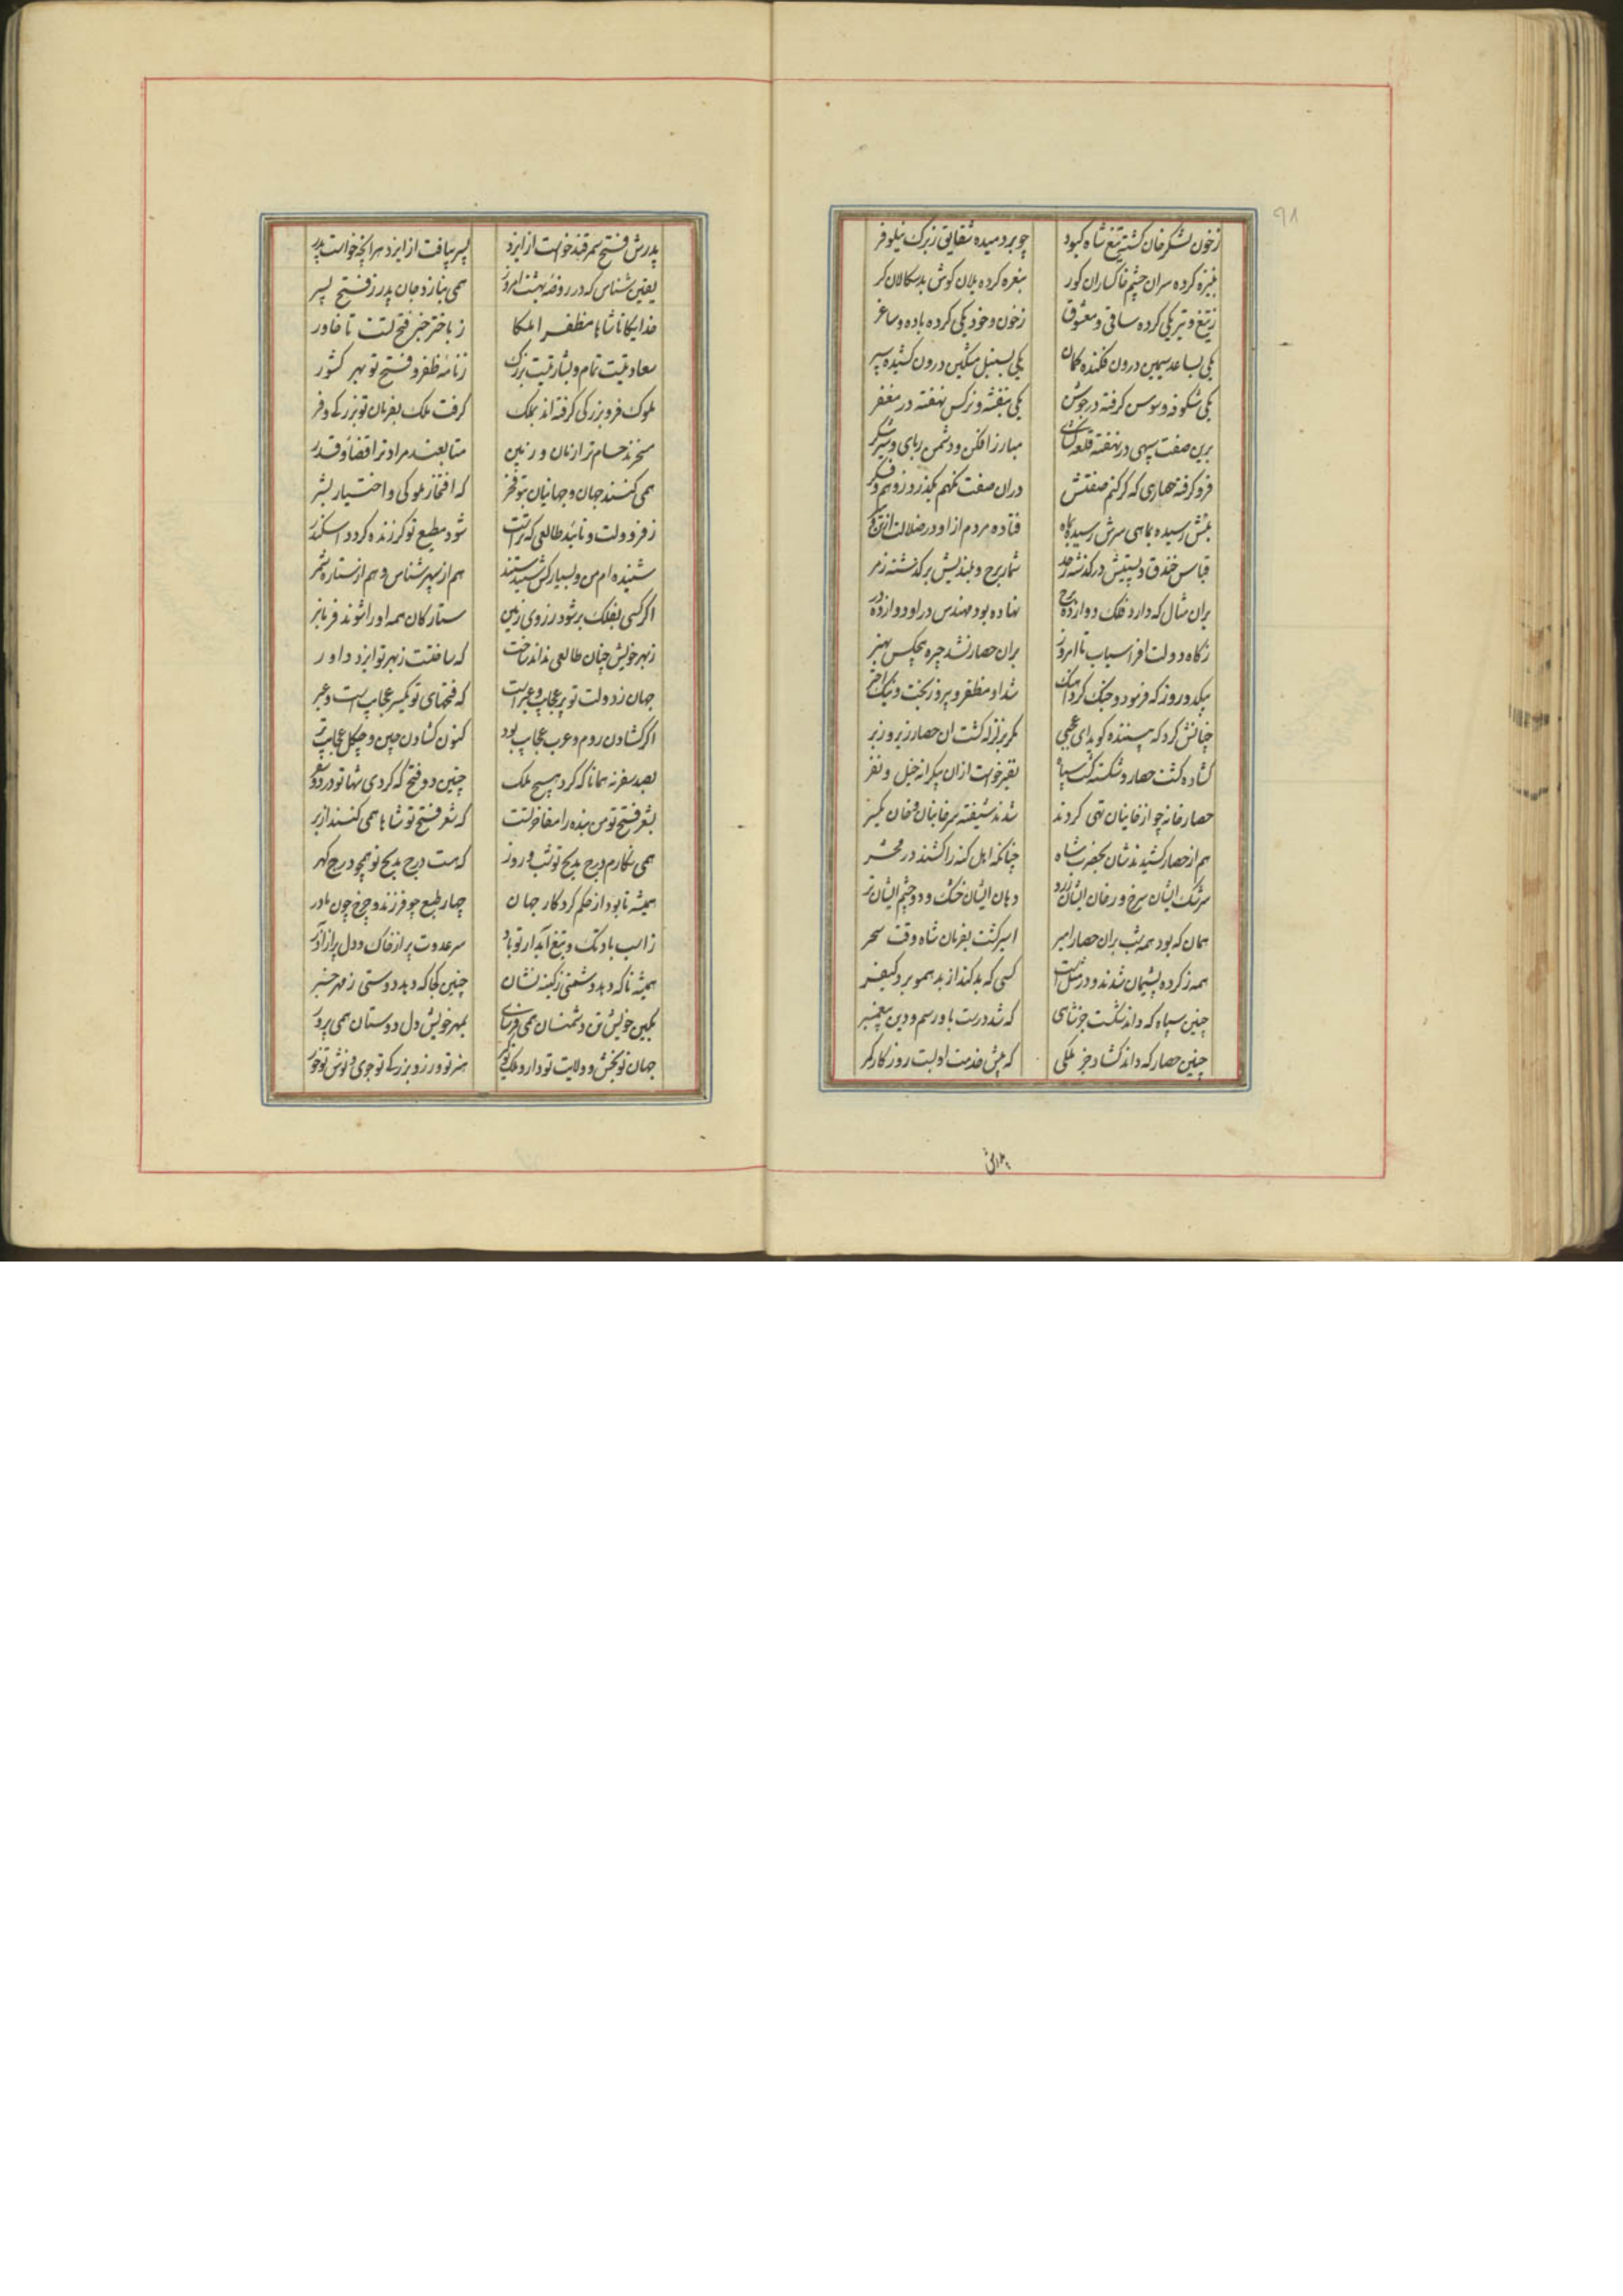 زخون لشکر خان گشته تیغ شاه کبود چو بردمیده شقایق ز برک نیلوفر
بنیزه کرده سران چشم خاکساران کور بنعره کرده یلان کوش بدسکالان کر
ز تیغ و تیر یکی کرده ساقی و معشوق ز خون و خود یکی کرده باده و ساغر
یکی بساعد سیمین درون فکنده کمان یکی بسنبل مشکین درون کشیده سپر
یکی شکوفه و سوسن گرفته در جوشن یکی بنفشه و نرکس نهفته در مغفر
برین صفت سپهی در نهفته قلعه کشای مبارز افکن و دشمن ربای و شیر شکر
فرو گرفته حصاری که گر کنم صفتش در آن صفت نکنم بگذرد ز وهم و فکر
بنش رسیده بماهی سرش رسیده بماه فتاده مردم از او در ضلالت
قیاس خندق و پستیش درگذشته ز حد شمار برج و بلندیش برگذشته ز مر
بران مثال که دارد فلک دوازده برج نهاده بود مهندس در او دوازده در
ز کاه دولت افراسیاب تا امروز بران حصار نشد چیره هیچکس بهنر
بیکدو روز که فرمود و جنک کرد ملک شد او مظفر و پیروز بخت و نیک اختر
چنانش کرد که بیننده کوید ای عجبی مگر بزلزله گشت ان حصار زیر و زبر
گشاده گشت حصار و شکسته گشت سپاه نفیر خواست ازان بیکرانه خیل و نفر
حصار خانه چو از خانیان تهی کردند شدند شیفته سر خانیان و خان یکسر
هم از حصار کشیدندشان بحضرت شاه چنانکه اهل کنه را کشند در محشر
سرشک ایشان سرخ و رخان ایشان زرد دهان ایشان خشک و دو چشم ایشان تر
همان که بود همه شب بران حصار امیر اسیر گشت بفرمان شاه وقت سحر
همه ز کرده پشیمان شدند و در مثل است کسی که بد کند از بد همو برد کیفر
چنین سپاه که داند شکست جز شاهی که شد درست باو رسم و دین پیغمبر
چنین حصار که داند گشاد جز ملکی که پیش خدمت او بست روزگار کمر
پدرش
پدرش فتح سمرقند خواست از ایزد پسر بیافت از ایزد هر انچه خواست پدر
یقین شناس که در روضه بهشت امروز همی بنازد جان پدر ز فتح پسر
خدایکانا شاها مظفرا ملکا ز باختر خبر فتح تست تا خاور
سعادتیست تمام و بشارتیست بزرک ز نامه ظفر و فتح تو بهر کشور
ملوک فر و بزرکی گرفته اند بملک گرفت ملک بفرمان تو بزرکی و فر
مسخرند حسام ترا زمان و زمین متابعند مراد ترا قضا و قدر
همی کنند جهان و جهانیان بتو فخر که افتخار ملوکی و اختیار بشر
ز فر دولت و تایید طالعی که تراست شود مطیع تو گر زنده گردد اسکندر
شنیده ام من و بسیار کس شنیدستند هم از سپهر شناس و هم از ستاره شمر
اگر کسی بفلک بر شود ز روی زمین ستارکان همه او را شوند فرمانبر
ز بهر خویش چنان طالعی نداند ساخت که ساختست ز بهر تو ایزد داور
جهان ز دولت تو پر عجایب و عبر است که فتحهای تو یکسر عجایب است و عبر
اگر گشادن روم و عرب عجایب بود کنون گشادن چین و چگل عجایب تر
بصد سفر نه همانا که کرد هیچ ملک چنین دو فتح که کردی شها تو در دو سفر
بشعر فتح تو من بنده را مفاخرتست که شعر فتح تو شاها همی کنند از بر
همی نگارم درج مدیح تو شب و روز که هست درج مدیح تو همچو درج گهر
همیشه تا بود از حکم کردکار جهان چهار طبع چو فرزند و چرخ چون مادر
ز اسب بادتک و تیغ آبدار تو باد سر عدوت پر از خاک و دل پر از آذر
همیشه تا که دهد دشمنی ز کینه نشان چنین کجا که دهد دوستی ز مهر خبر
بکین خویش تن دشمنان همی فرسای بمهر خویش دل دوستان همی پرور
جهان تو بخش و ولایت تو دار و ملک تو گیر هنر تو ورز و بزرکی تو جوی و نوش تو خور